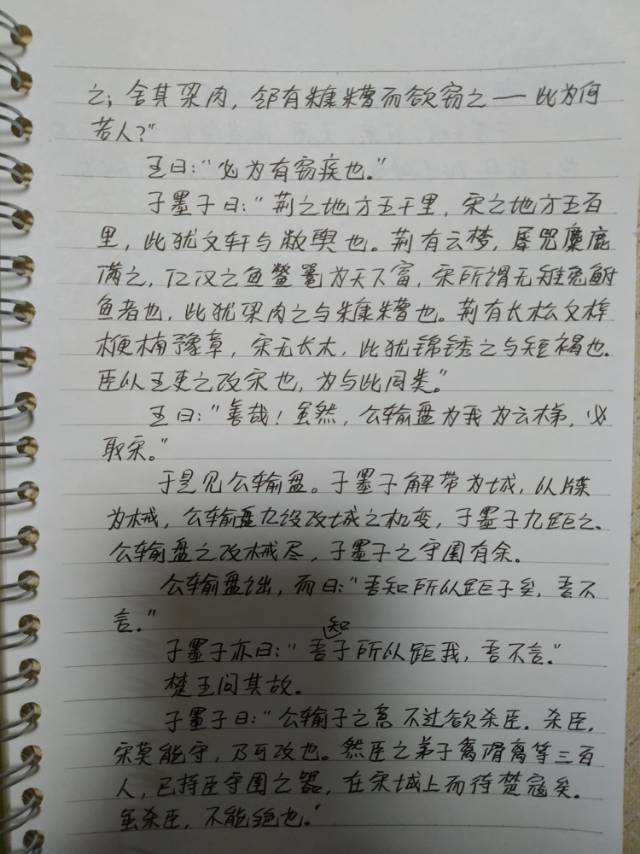 之；舍其梁肉，邻有糠糟而欲窃之——此为何
若人？"
王曰："必为有窃疾也。"
子墨子曰："荆之地方五千里，宋之地方五百
里，此犹文轩与敝舆也。荆有云梦，犀兕麋鹿
满之，江汉之鱼鳖鼍为天下富，宋所谓无雉兔鲋
鱼者也，此犹梁肉之与糠糟也。荆有长松文梓
楩楠豫章，宋无长木，此犹锦绣之与短褐也。
臣以王吏之攻宋也，为与此同类。"
王曰："善哉！虽然，公输盘为我为云梯，必
取宋。"
于是见公输盘。子墨子解带为城，以牒
为械，公输盘九设攻城之机变，子墨子九距之。
公输盘之攻械尽，子墨子之守圉有余。
公输盘诎，而曰："吾知所以距子矣，吾不
言。"
子墨子亦曰："吾知子所以距我，吾不言。"
楚王问其故。
子墨子曰："公输子之意不过欲杀臣。杀臣，
宋莫能守，乃可攻也。然臣之弟子禽滑离等三百
人，已持臣守圉之器，在宋城上而待楚寇矣。
虽杀臣，不能绝也。"